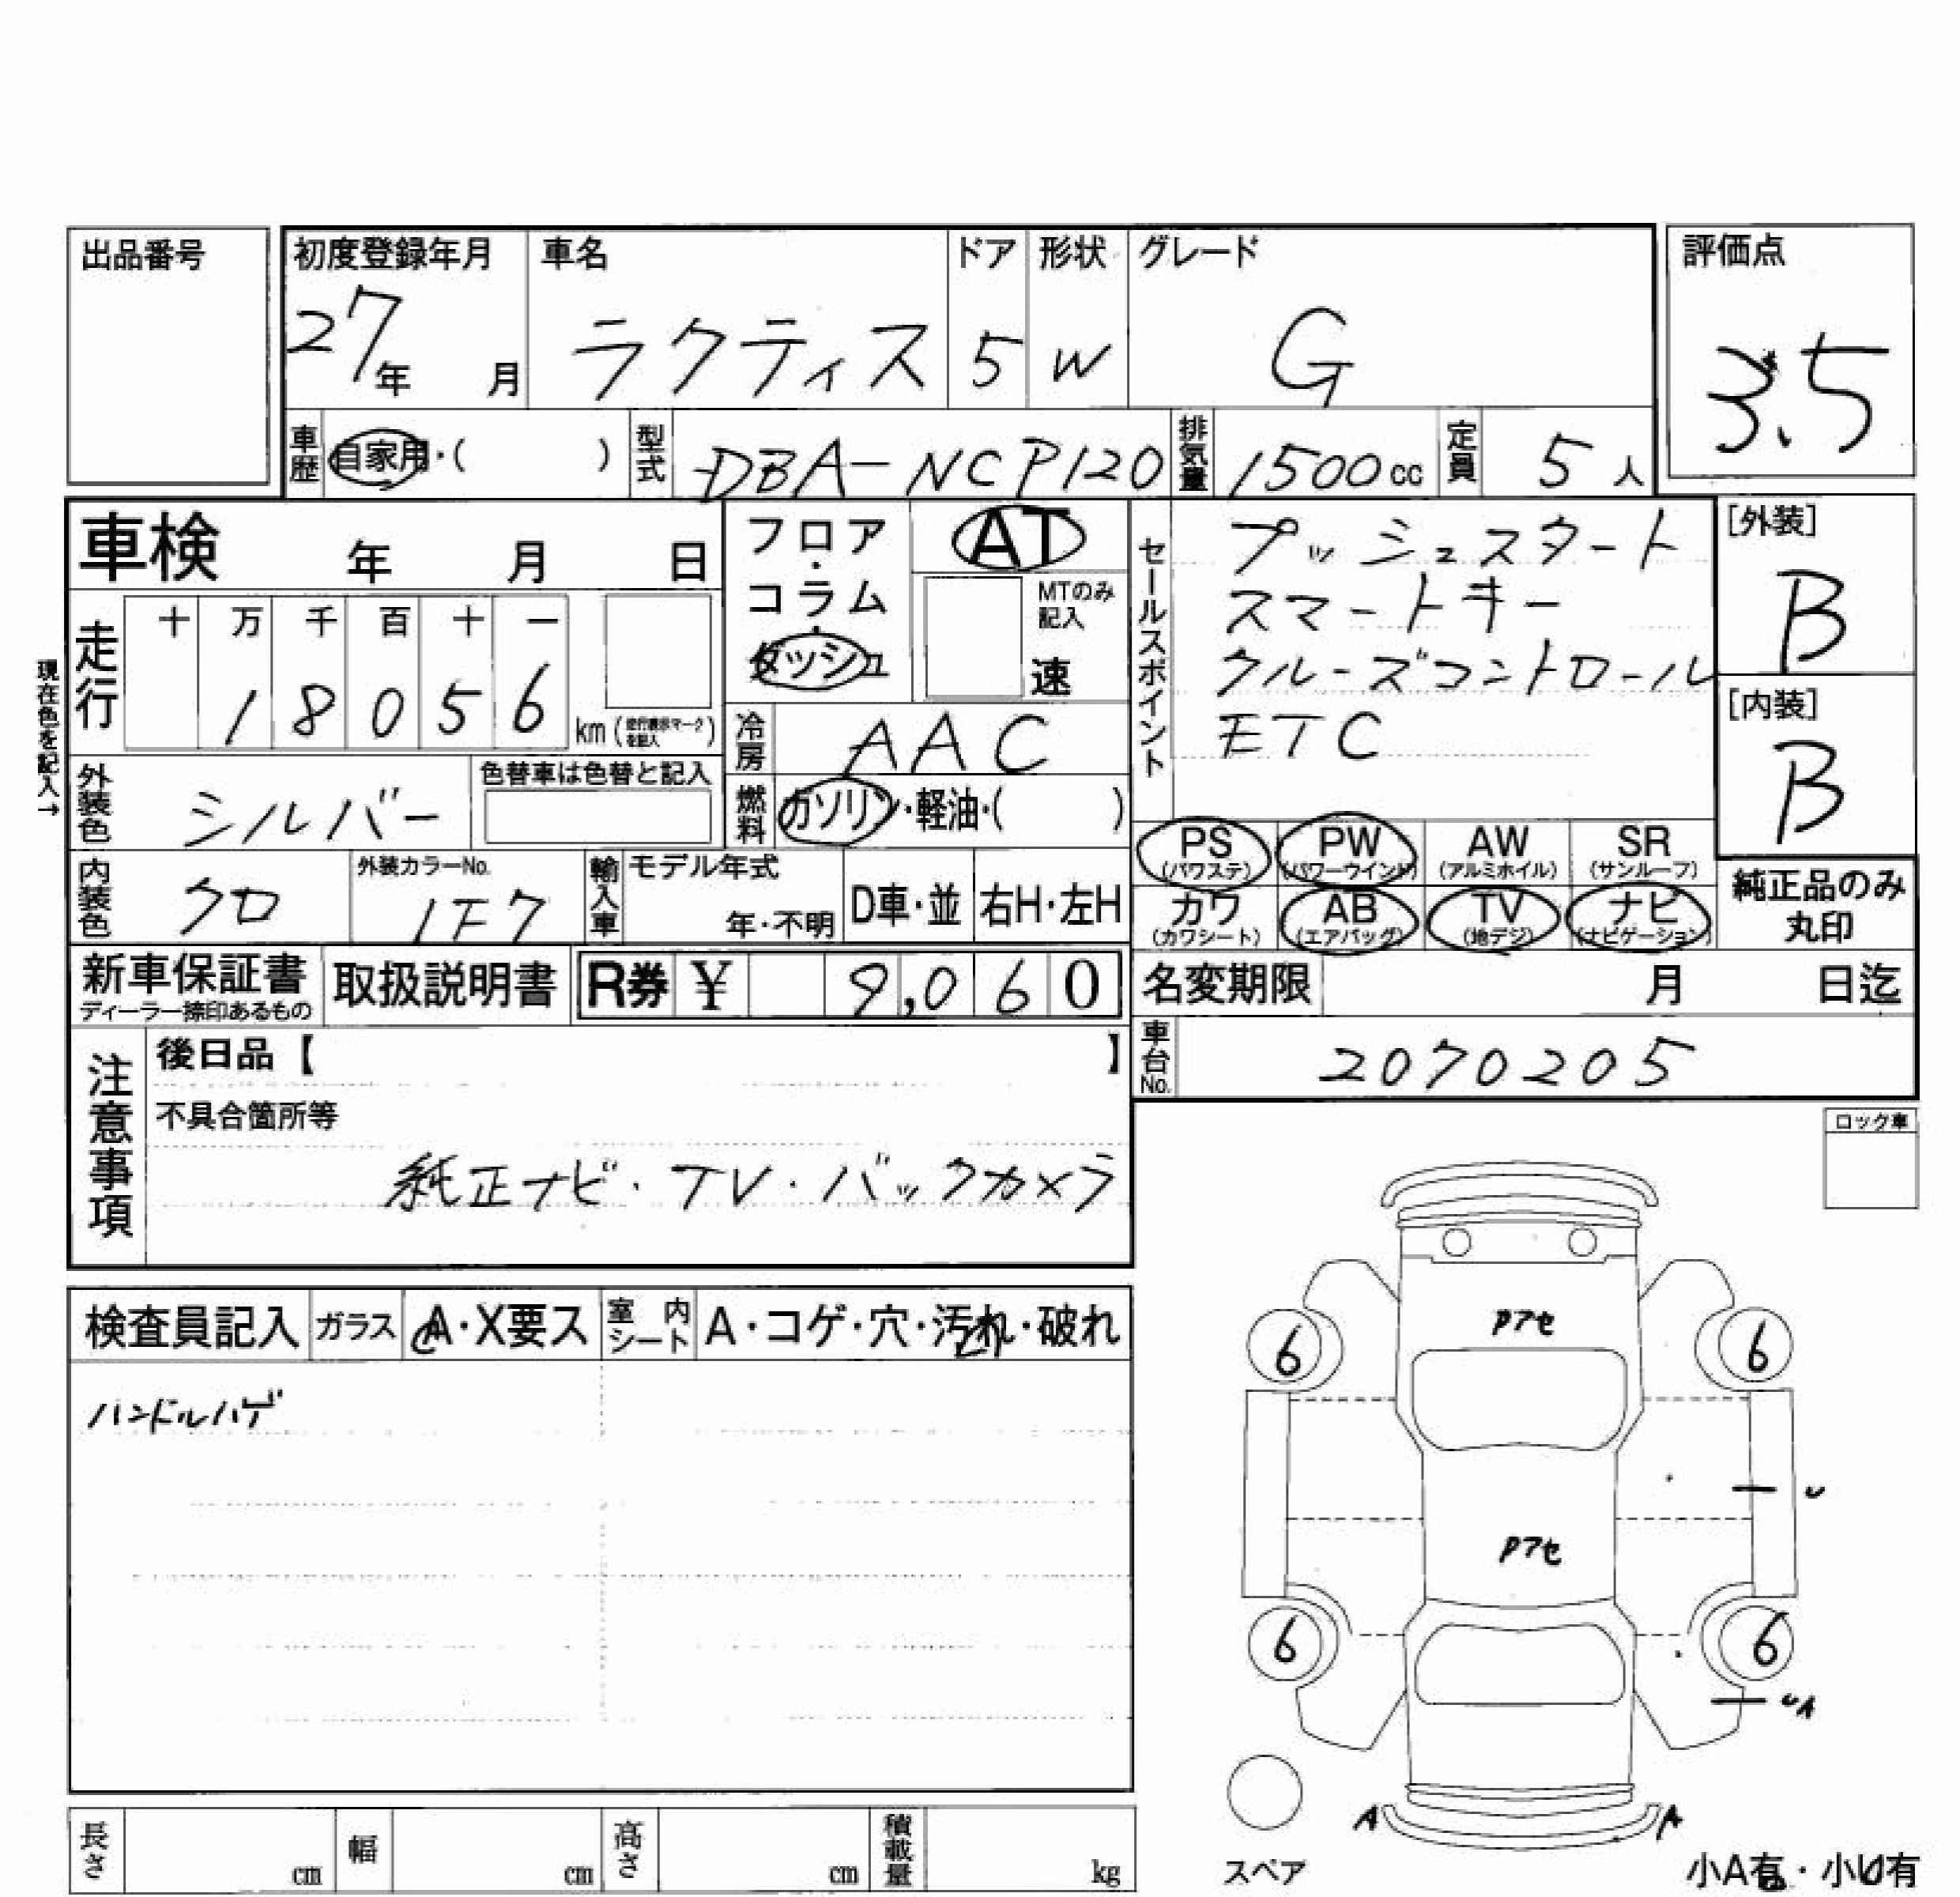 出品番号
初度登録年月 車名 ドア 形状 グレード 評価点
27年 月 ラクティス 5 W G 3.5
車歴 自家用・( ) 型式 DBA-NCP120 排気量 1500cc 定員 5人
車検 年 月 日
フロア・コラム・ダッシュ AT
MTのみ記入 速
セールスポイント
プッシュスタート
スマートキー
クルーズコントロール
ETC
[外装]
B
[内装]
B
現在色を記入→
走行 十 万 千 百 十 一
18056 km (走行表示マークを記入)
冷房 AAC
外装色 シルバー 色替車は色替と記入
燃料 ガソリン・軽油・( )
PS (パワステ) PW (パワーウインド) AW (アルミホイル) SR (サンルーフ)
カワ (カワシート) AB (エアバッグ) TV (地デジ) ナビ (ナビゲーション)
純正品のみ丸印
内装色 クロ 外装カラーNo. 1F7 輸入車 モデル年式 年・不明 D車・並 右H・左H
新車保証書 ディーラー捺印あるもの 取扱説明書 R券 ¥ 9,060
名変期限 月 日迄
車台No. 2070205
注意事項
後日品【 】
不具合箇所等
純正ナビ・TV・バックカメラ
ロック車
検査員記入 ガラス A・X要ス 室内シート A・コゲ・穴・汚れ・破れ
ハンドルハゲ
Pアセ
6 6
U
Pアセ
6 6
UA
A A
スペア
小A有・小U有
長さ cm 幅 cm 高さ cm 積載量 kg